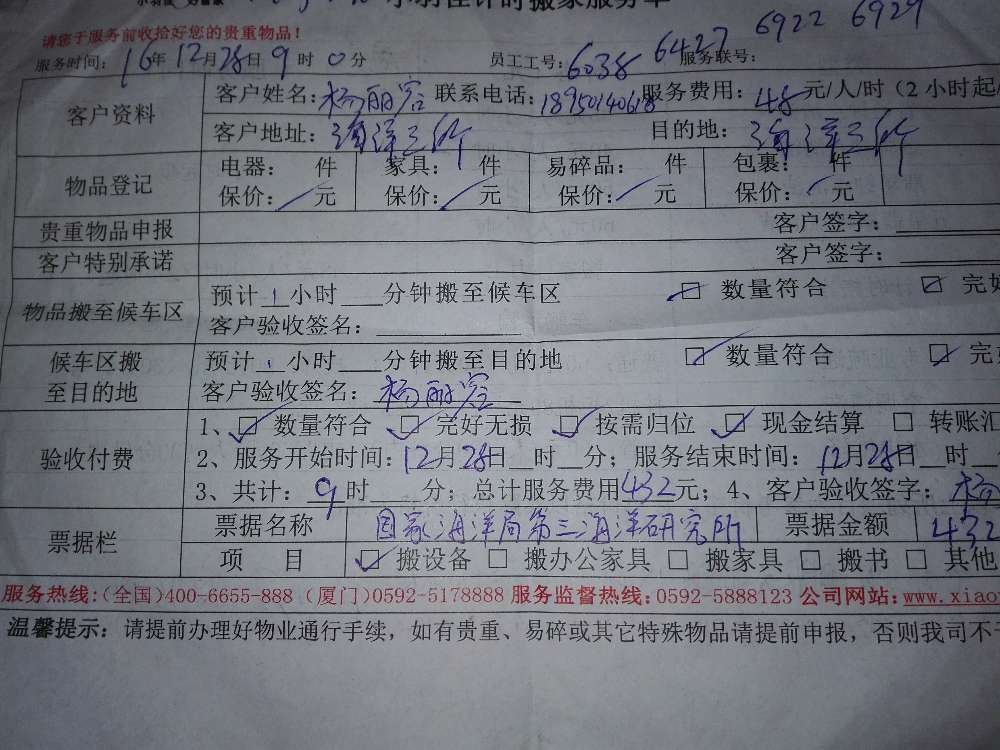 小羽佳计时搬家服务单
请您于服务前收拾好您的贵重物品！
6427 6922 6929
服务时间：16年12月28日9时0分 员工工号：6038 服务联号：
客户资料 客户姓名：杨丽容 联系电话：18950140618 服务费用：48元/人/时（2小时起
客户地址：海洋三所 目的地：海洋三所
物品登记 电器： 件 家具： 件 易碎品： 件 包裹： 件
保价： 元 保价： 元 保价： 元 保价： 元
贵重物品申报 客户签字：
客户特别承诺 客户签字：
物品搬至候车区 预计1小时___分钟搬至候车区 ☑ 数量符合 ☑ 完好
客户验收签名：
候车区搬至目的地 预计1小时___分钟搬至目的地 ☑ 数量符合 ☑ 完好
客户验收签名：杨丽容
验收付费 1、☑ 数量符合 ☑ 完好无损 ☑ 按需归位 ☑ 现金结算 ☐ 转账汇
2、服务开始时间：12月28日__时__分；服务结束时间：12月28日__时__分
3、共计：9时___分；总计服务费用432元；4、客户验收签字：杨
票据栏 票据名称 国家海洋局第三海洋研究所 票据金额 432
项 目 ☑ 搬设备 ☐ 搬办公家具 ☐ 搬家具 ☐ 搬书 ☐ 其他
服务热线：(全国)400-6655-888 (厦门)0592-5178888 服务监督热线：0592-5888123 公司网站：www.xiao
温馨提示：请提前办理好物业通行手续，如有贵重、易碎或其它特殊物品请提前申报，否则我司不予